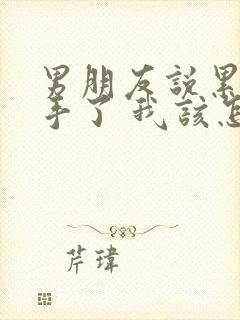 男朋友説累
手了我該怎
芹瑋